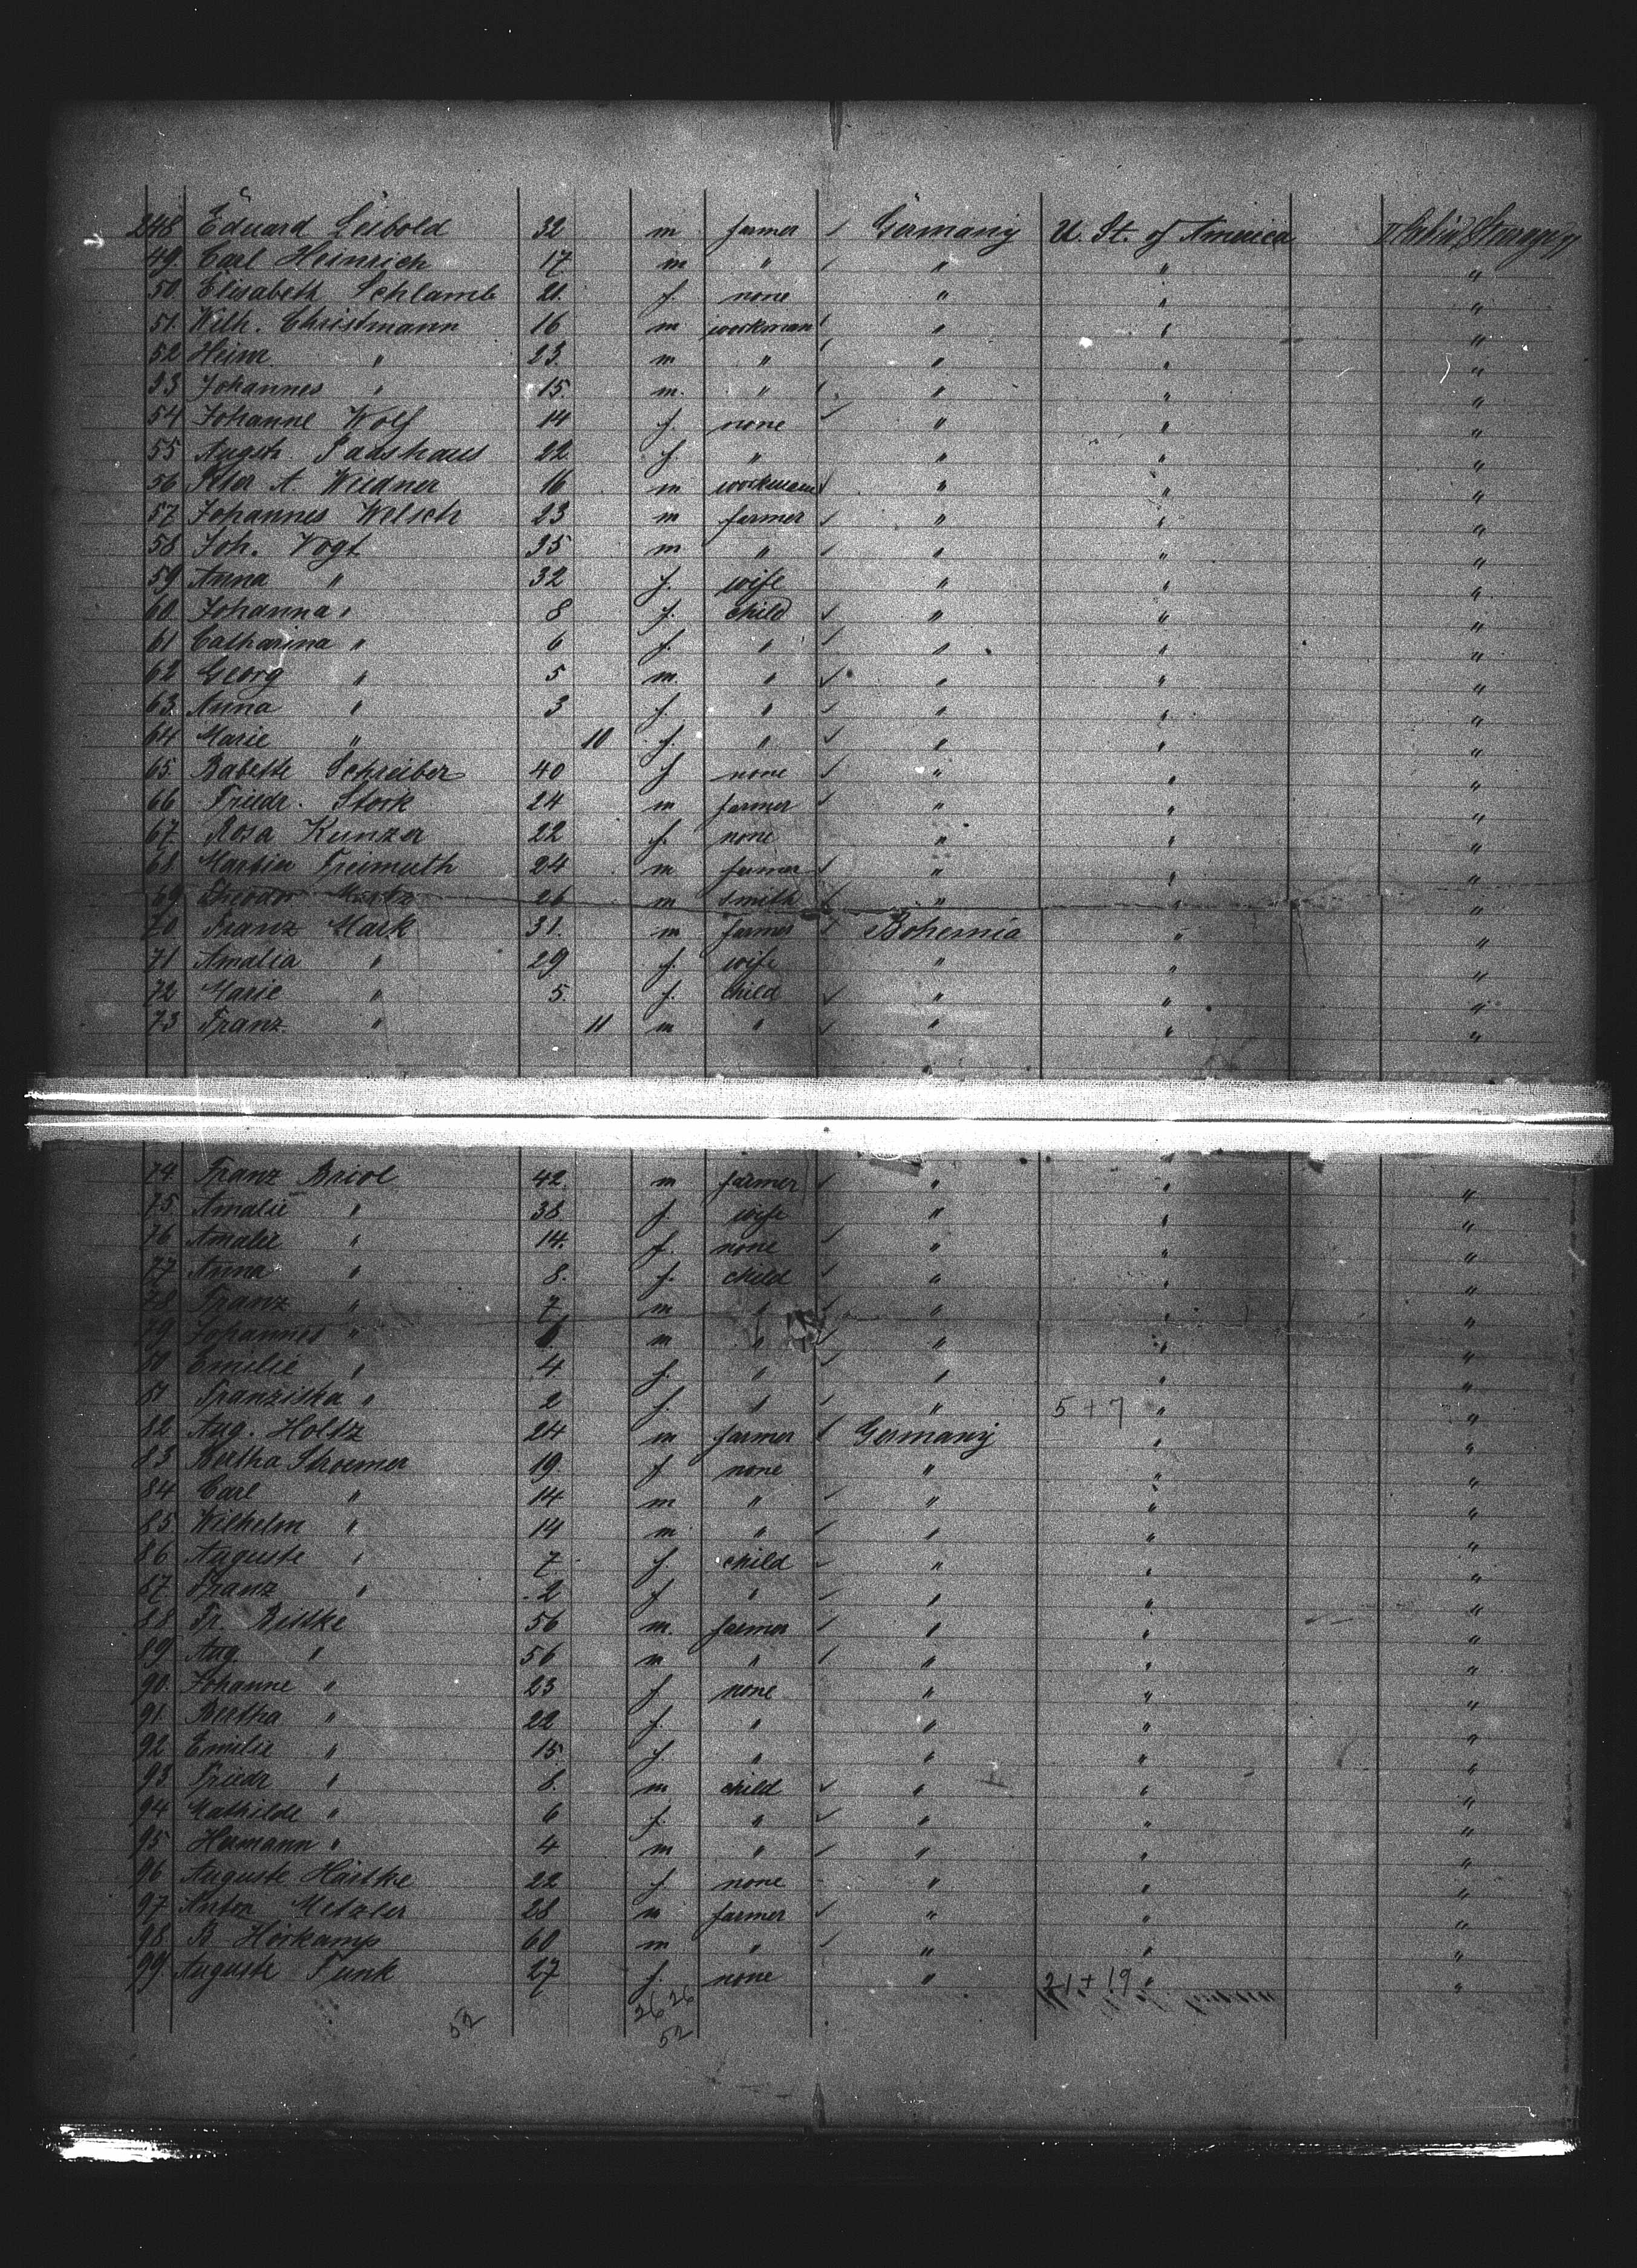 248 Eduard Leibold 32 m farmer ✓ Germany U. St. of America II
49 Carl Heinrich 17 m " ✓ " " "
50. Elisabeth Schlamb 21. f. none " " "
51. Wilh. Christmann 16 m workman ✓ " " "
52 Heinr. " 23. m " ✓ " " "
53 Johannes " 15. m. " ✓ " " "
54 Johanne Wolf 14 f. none ✓ " " "
55 22 f. " " " "
56 Peter A. Weidner 16 m workmann ✓ " " "
57 Johannes Welsch 23 m farmer ✓ " " "
58 Joh. Vogt 35 m " ✓ " " "
59 Anna " 32 f. wife " " "
60. Johanna " 8 f. child ✓ " " "
61 Catharina " 6 f. " ✓ " " "
62 Georg " 5 m. " ✓ " " "
63. Anna " 3 f. " ✓ " " "
64 Marie " 10 f. " ✓ " " "
65. Babette Schreiber 40 f none ✓ " " "
66 Friedr. Stork 24 m farmer ✓ " " "
67. Rosa Kunzer 22 f. none " " "
68. Martin Freimuth 24 m farmer ✓ " " "
69 Theodor 26 m smith ✓ " " "
70 Franz Mark 31. m farmer ✓ Bohemia " "
71 Amalia " 29 f. wife " " "
72 Marie " 5. f. child ✓ " " "
73 Franz " 11 m " ✓ " " "
74 Franz 42. m farmer ✓ " " "
75 Amalie " 38 f. wife " " "
76 Amalie " 14. f. none ✓ " " "
77 Anna " 8. f. child ✓ " " "
78 Franz " 7 m " ✓ " " "
79 Johannes " m " ✓ " " "
80 Emilie " 4 f. " ✓ " " "
81 Franziska " 2 f. " ✓ " 5 + 7 " "
82 Aug. Holtz 24 m farmer ✓ Germany " "
83 Bertha Stroemer 19. f none " " "
84 Carl " 14 m " ✓ " " "
85 Wilhelm " 14 m. " ✓ " " "
86 Auguste " 7 f. child ✓ " " "
87 Franz " 2 f " ✓ " " "
88 Fr. Bittke 56 m. farmer ✓ " " "
89 Aug. " 56 m " ✓ " " "
90. Johanne " 23 f none " " "
91. Bertha " 22 f. " " " "
92 Emilie " 15. f. " " " "
93. Friedr " 8. m child ✓ " " "
94 Mathilde " 6 f. " ✓ " " "
95 Hermann " 4 m " ✓ " " "
96 Auguste Hartke 22 f. none " " "
97 Anton Metzler 28 m farmer ✓ " " "
98. B. Horkamp 60 m " ✓ " " "
99 Auguste Funk 27 f. none " 21 + 19 " "
52 26 26
52